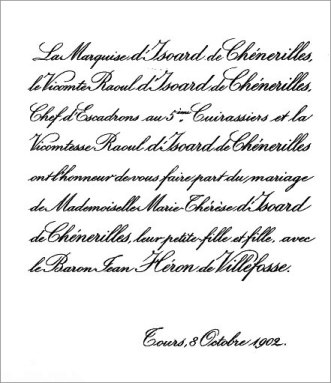 La Marquise d'Isoard de Chénerilles,
le Vicomte Raoul d'Isoard de Chénerilles,
Chef d'Escadrons au 5ème Cuirassiers et la
Vicomtesse Raoul d'Isoard de Chénerilles
ont l'honneur de vous faire part du mariage
de Mademoiselle Marie-Thérèse d'Isoard
de Chénerilles, leur petite-fille et fille, avec
le Baron Jean Héron de Villefosse.
Tours, 8 Octobre 1902.